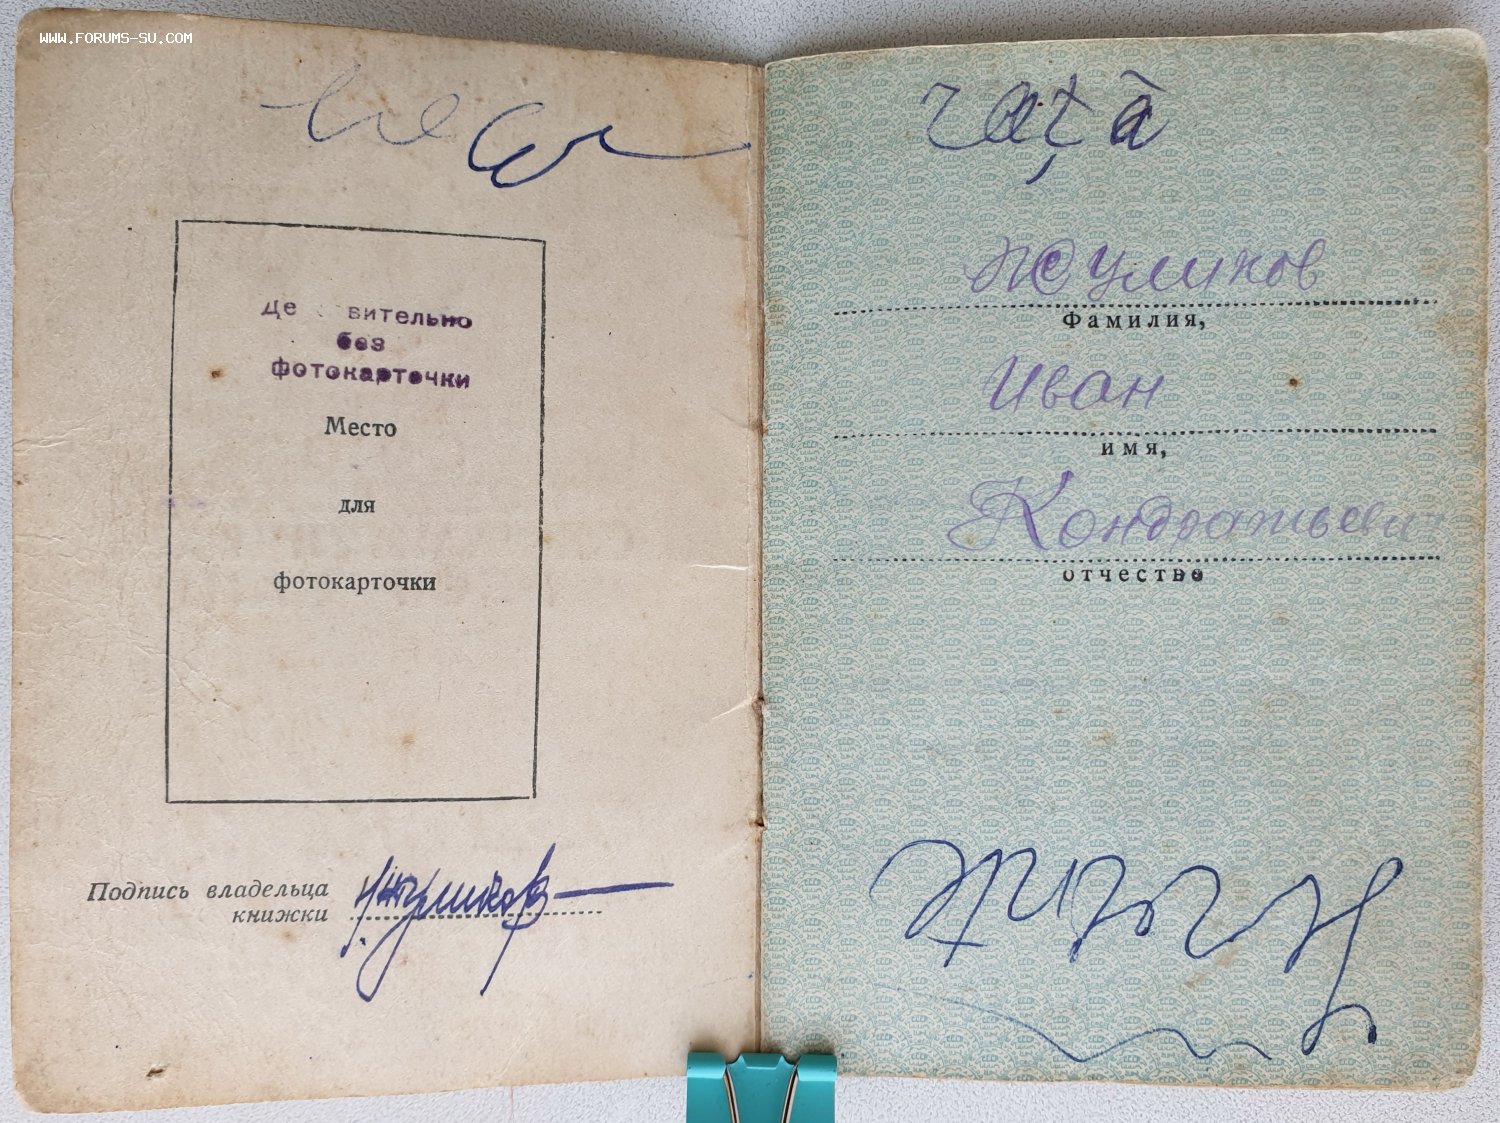 WWW.FORUMS-SU.COM
Де вительно
без
фотокарточки
Место
для
фотокарточки
Подпись владельца
книжки
Жуликов
Фамилия,
Иван
имя,
Кондратьевич
отчество